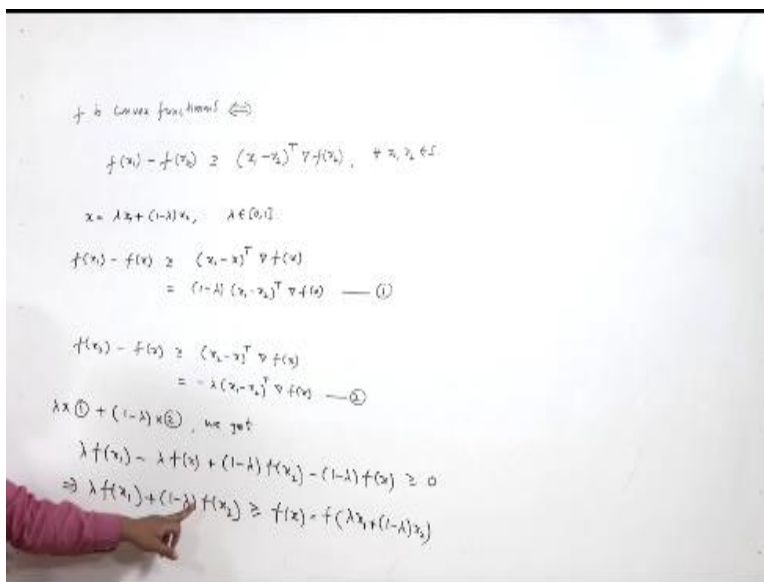 f is convex functions ⇔
f(x₁) - f(x₂) ≥ (x₁-x₂)ᵀ ∇f(x₂), ∀ x₁, x₂ ∈ S.
x = λx₁ + (1-λ)x₂, λ ∈ [0,1].
f(x₁) - f(x) ≥ (x₁-x)ᵀ ∇f(x)
= (1-λ) (x₁-x₂)ᵀ ∇f(x) — ①
f(x₂) - f(x) ≥ (x₂-x)ᵀ ∇f(x)
= -λ(x₁-x₂)ᵀ ∇f(x) — ②
λ×① + (1-λ)×②, we get
λf(x₁) - λf(x) + (1-λ)f(x₂) - (1-λ)f(x) ≥ 0
⇒ λf(x₁) + (1-λ)f(x₂) ≥ f(x) = f(λx₁+(1-λ)x₂)